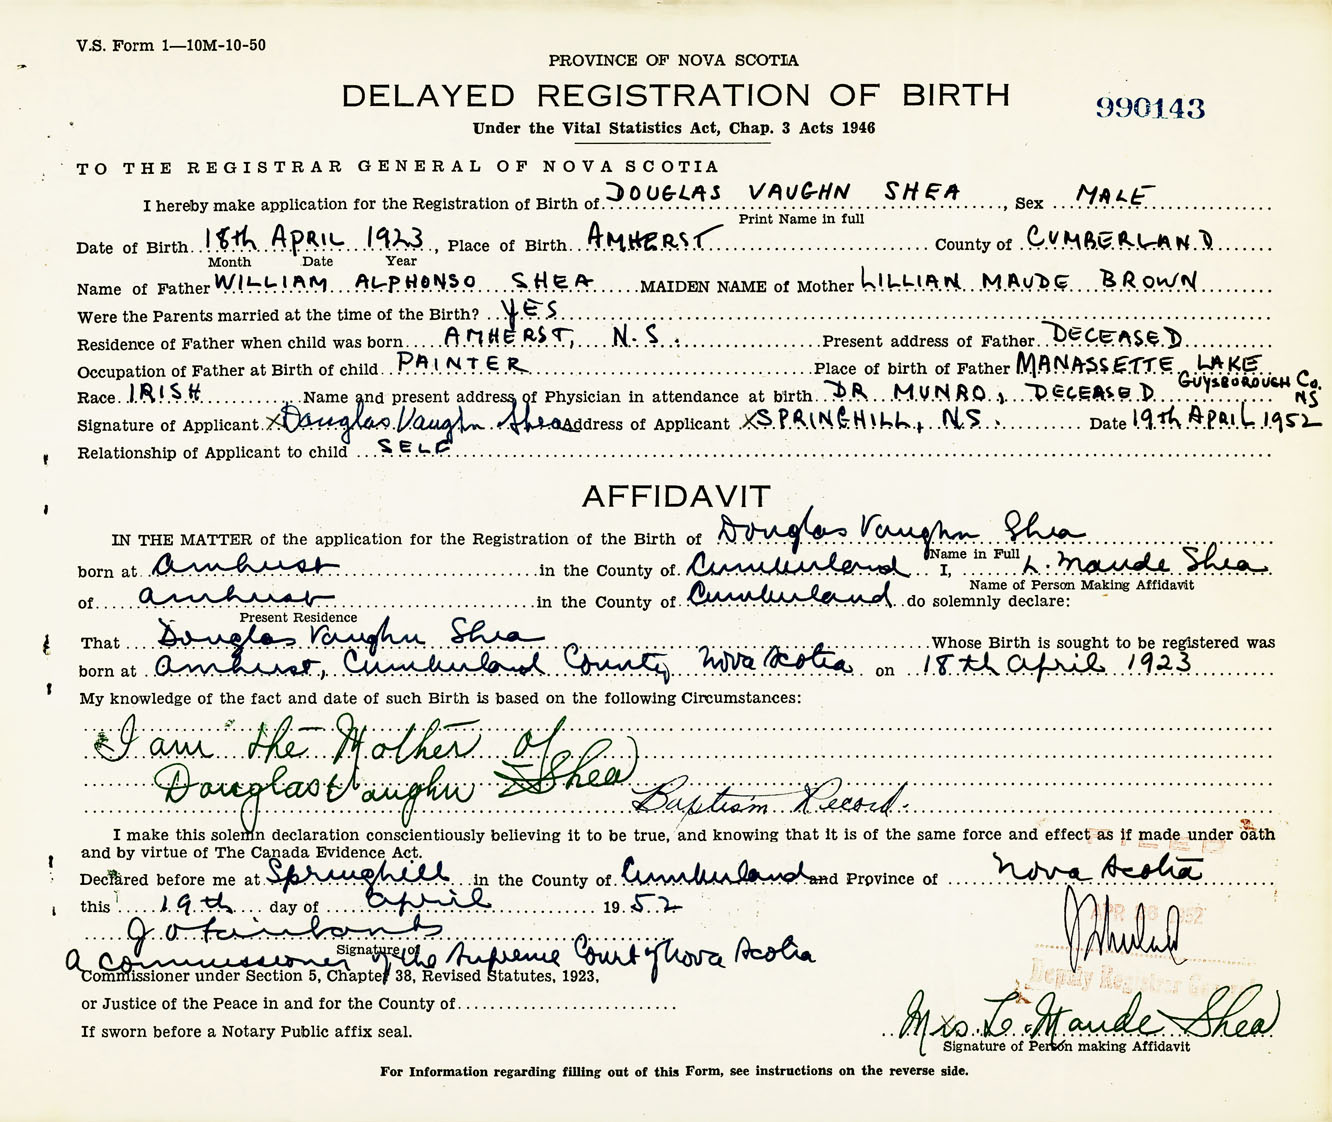 V.S. Form 1—10M-10-50
PROVINCE OF NOVA SCOTIA
DELAYED REGISTRATION OF BIRTH
990143
Under the Vital Statistics Act, Chap. 3 Acts 1946
TO THE REGISTRAR GENERAL OF NOVA SCOTIA
I hereby make application for the Registration of Birth of DOUGLAS VAUGHN SHEA, Sex MALE
Print Name in full
Date of Birth 18th APRIL 1923, Place of Birth AMHERST County of CUMBERLAND
Month Date Year
Name of Father WILLIAM ALPHONSO SHEA MAIDEN NAME of Mother LILLIAN MAUDE BROWN
Were the Parents married at the time of the Birth? YES
Residence of Father when child was born AMHERST, N.S. Present address of Father DECEASED
Occupation of Father at Birth of child PAINTER Place of birth of Father MANASSETTE LAKE
GUYSBOROUGH Co. NS
Race IRISH Name and present address of Physician in attendance at birth DR MUNRO, DECEASED
Signature of Applicant X Douglas Vaughn Shea Address of Applicant X SPRINGHILL, N.S. Date 19th APRIL 1952
Relationship of Applicant to child SELF
AFFIDAVIT
IN THE MATTER of the application for the Registration of the Birth of Douglas Vaughn Shea
Name in Full
born at Amherst in the County of Cumberland I, L. Maude Shea
Name of Person Making Affidavit
of Amherst in the County of Cumberland do solemnly declare:
Present Residence
That Douglas Vaughn Shea Whose Birth is sought to be registered was
born at Amherst, Cumberland County Nova Scotia on 18th April 1923
My knowledge of the fact and date of such Birth is based on the following Circumstances:
I am the Mother of
Douglas Vaughn Shea
Baptism Record.
I make this solemn declaration conscientiously believing it to be true, and knowing that it is of the same force and effect as if made under oath
and by virtue of The Canada Evidence Act.
Declared before me at Springhill in the County of Cumberland and Province of Nova Scotia
this 19th day of April 1952
APR 1952
J O Fairbanks
Signature of
A Commissioner of the Supreme Court of Nova Scotia
Commissioner under Section 5, Chapter 38, Revised Statutes, 1923,
Deputy Registrar General
or Justice of the Peace in and for the County of
If sworn before a Notary Public affix seal.
Mrs. L. Maude Shea
Signature of Person making Affidavit
For Information regarding filling out of this Form, see instructions on the reverse side.